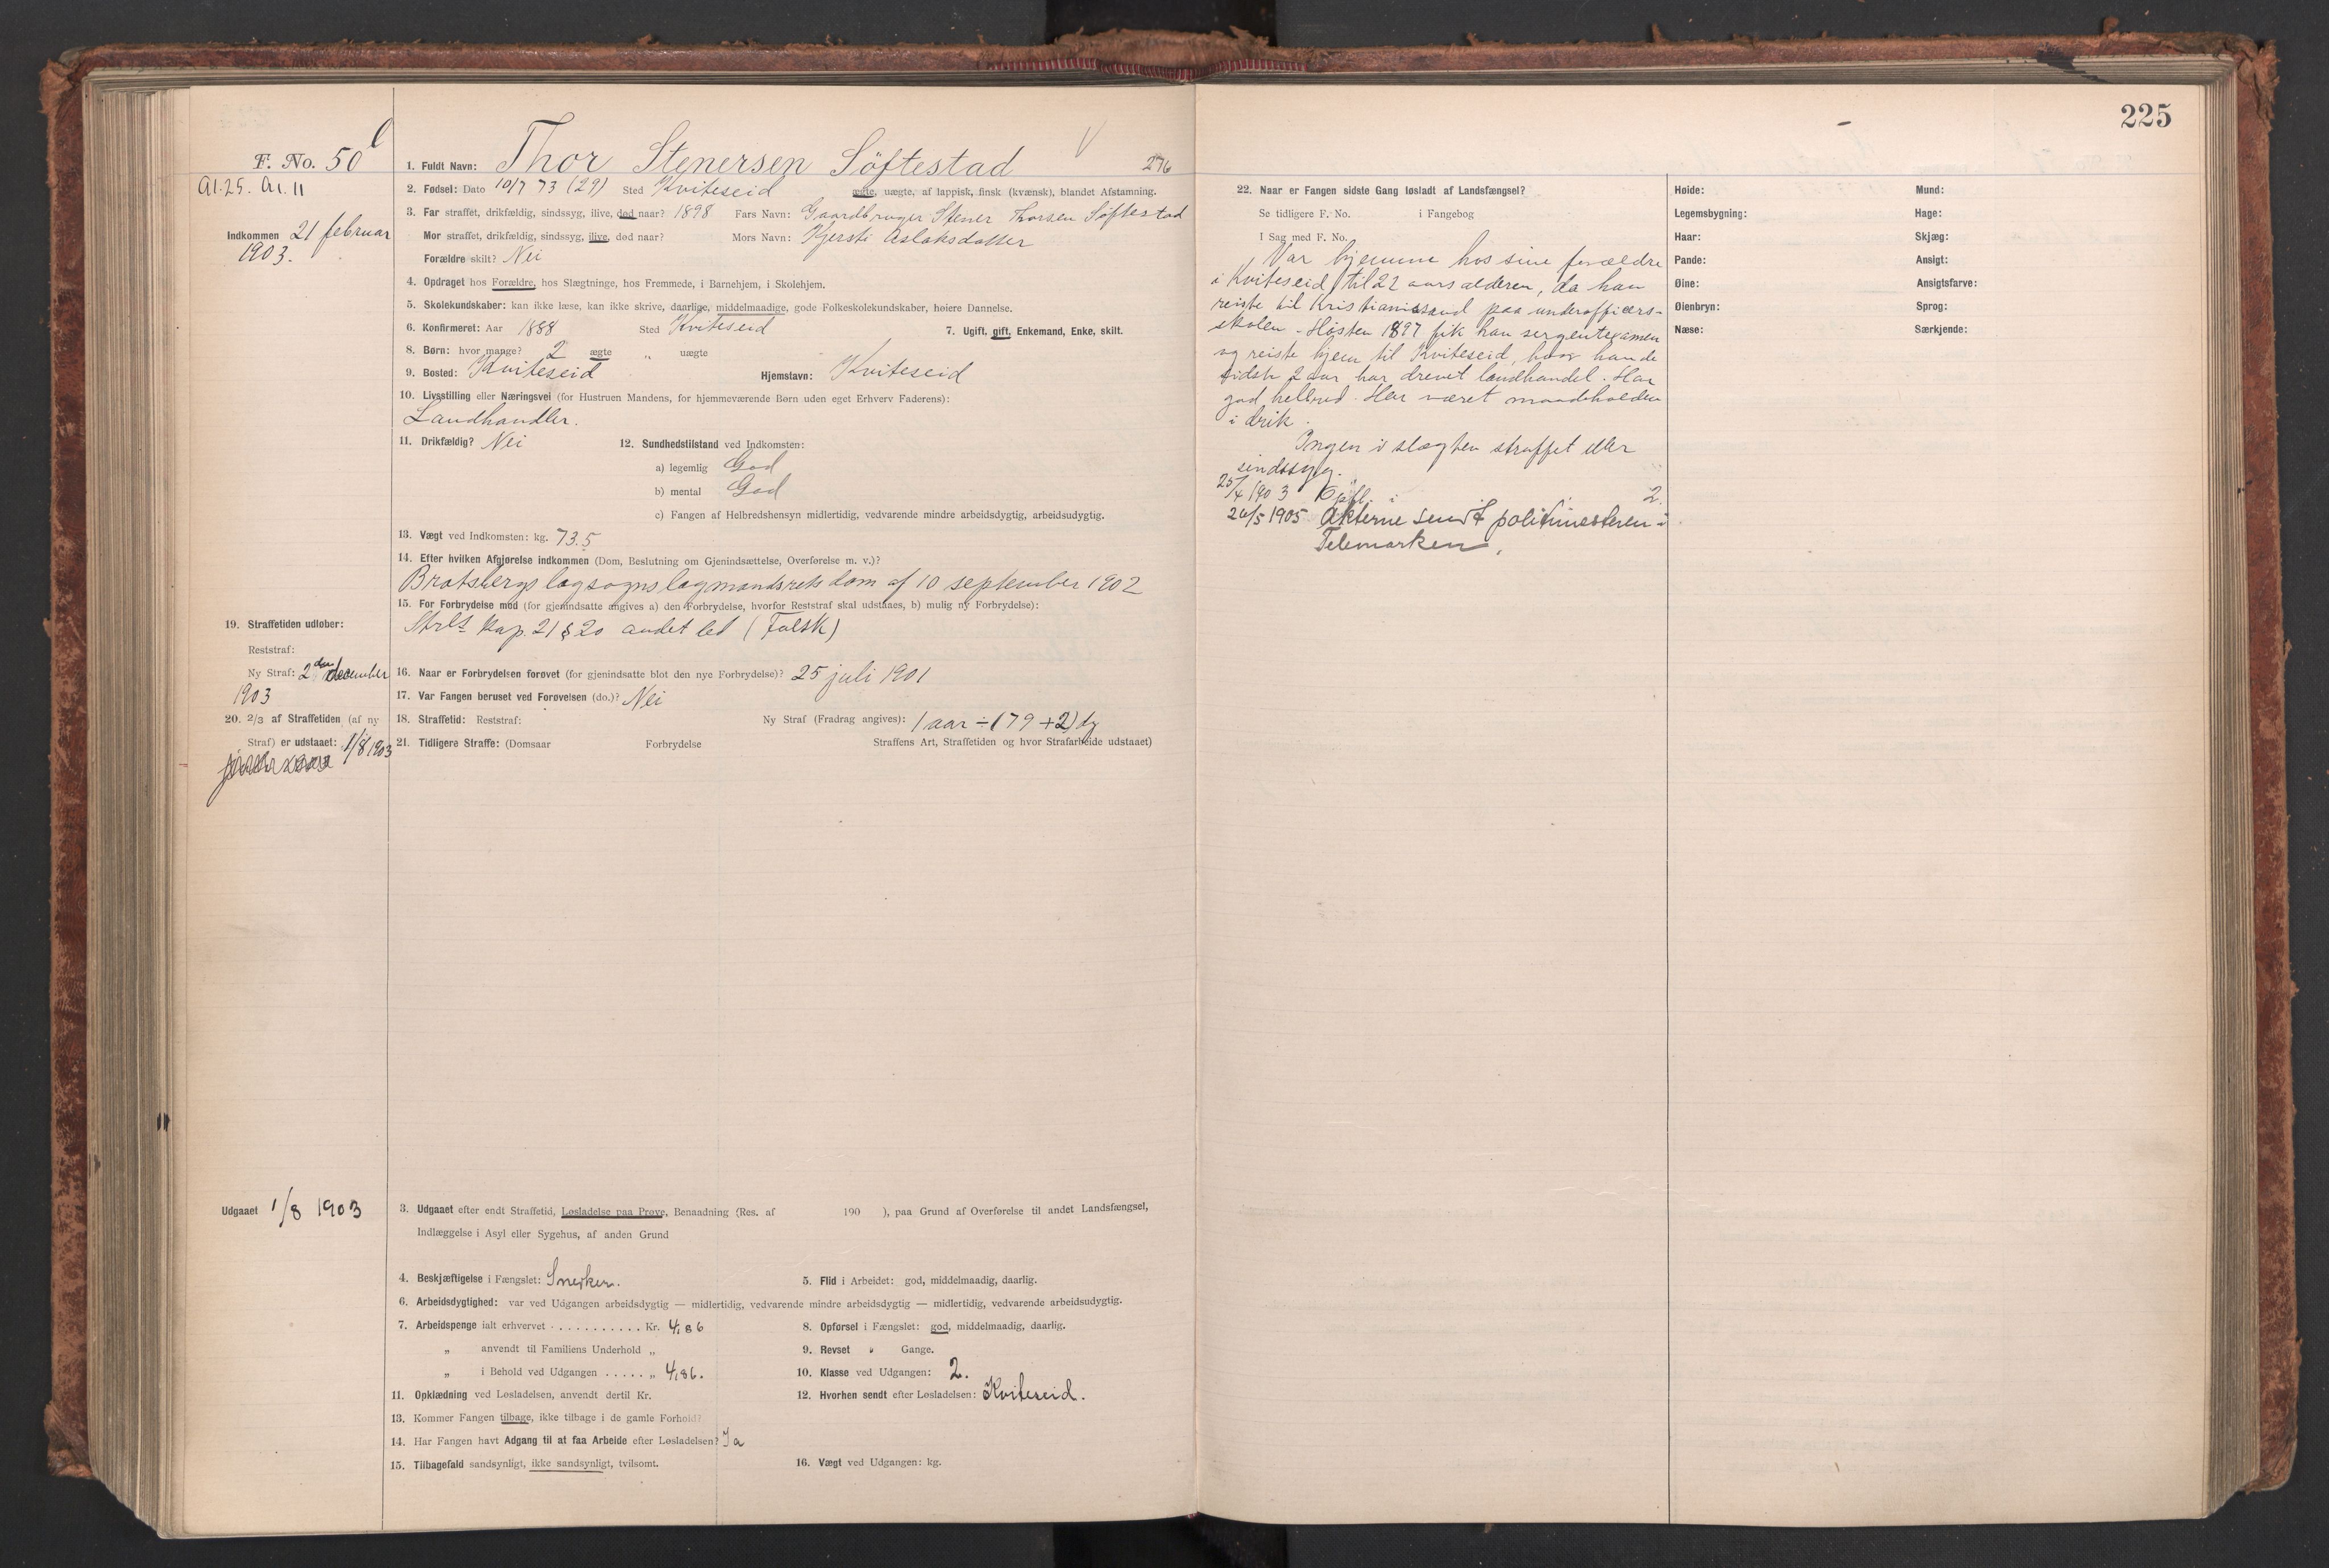 225
F. No. 50
Al. 25. A1. 11
Indkommen 21 februar
1903.
1. Fuldt Navn: Thor Stenersen Söftestad 276
2. Fødsel: Dato 10/7 73 (29) Sted Kviteseid ægte, uægte, af lappisk, finsk (kvænsk), blandet Afstamning.
3. Far straffet, drikfældig, sindssyg, ilive, død naar? 1898 Fars Navn: Gaardbruger Stener Thorsen Söftestad
Mor straffet, drikfældig, sindssyg, ilive, død naar? Mors Navn: Kjersti Aslaksdatter
Forældre skilt? Nei
4. Opdraget hos Forældre, hos Slægtninge, hos Fremmede, i Barnehjem, i Skolehjem.
5. Skolekundskaber: kan ikke læse, kan ikke skrive, daarlige, middelmaadige, gode Folkeskolekundskaber, høiere Dannelse.
6. Konfirmeret: Aar 1888 Sted Kviteseid 7. Ugift, gift, Enkemand, Enke, skilt.
8. Børn: hvor mange? 2 ægte „ uægte
9. Bosted: Kviteseid Hjemstavn: Kviteseid
10. Livsstilling eller Næringsvei (for Hustruen Mandens, for hjemmeværende Børn uden eget Erhverv Faderens):
Landhandler.
11. Drikfældig? Nei 12. Sundhedstilstand ved Indkomsten:
a) legemlig God
b) mental God
c) Fangen af Helbredshensyn midlertidig, vedvarende mindre arbeidsdygtig, arbeidsudygtig.
13. Vægt ved Indkomsten: kg. 73.5
14. Efter hvilken Afgjørelse indkommen (Dom, Beslutning om Gjenindsættelse, Overførelse m. v.)?
Bratsbergs lagsogns lagmandsrets dom af 10 september 1902
15. For Forbrydelse mod (for gjenindsatte angives a) den Forbrydelse, hvorfor Reststraf skal udstaaes, b) mulig ny Forbrydelse):
Strls kap. 21 § 20 andet led (Falsk)
16. Naar er Forbrydelsen forøvet (for gjenindsatte blot den nye Forbrydelse)? 25 juli 1901
17. Var Fangen beruset ved Forøvelsen (do.)? Nei
18. Straffetid: Reststraf: Ny Straf (Fradrag angives): 1 aar ÷ (79 + 2) dg
21. Tidligere Straffe: (Domsaar Forbrydelse Straffens Art, Straffetiden og hvor Strafarbeide udstaaet)
19. Straffetiden udløber:
Reststraf:
Ny Straf: 2den december
1903
20. 2/3 af Straffetiden (af ny
Straf) er udstaaet: 1/8 1903
Udgaaet 1/8 1903
3. Udgaaet efter endt Straffetid, Løsladelse paa Prøve, Benaadning (Res. af 190 ), paa Grund af Overførelse til andet Landsfængsel,
Indlæggelse i Asyl eller Sygehus, af anden Grund
4. Beskjæftigelse i Fængslet: Snedker. 5. Flid i Arbeidet: god, middelmaadig, daarlig.
6. Arbeidsdygtighed: var ved Udgangen arbeidsdygtig — midlertidig, vedvarende mindre arbeidsdygtig — midlertidig, vedvarende arbeidsudygtig.
7. Arbeidspenge ialt erhvervet . . . . . . . . . . . Kr. 4,86 8. Opførsel i Fængslet: god, middelmaadig, daarlig.
„ anvendt til Familiens Underhold „ 9. Revset „ Gange.
„ i Behold ved Udgangen . . . . . „ 4,86. 10. Klasse ved Udgangen: 2.
11. Opklædning ved Løsladelsen, anvendt dertil Kr. 12. Hvorhen sendt efter Løsladelsen: Kviteseid.
13. Kommer Fangen tilbage, ikke tilbage i de gamle Forhold?
14. Har Fangen havt Adgang til at faa Arbeide efter Løsladelsen? Ja
15. Tilbagefald sandsynligt, ikke sandsynligt, tvilsomt. 16. Vægt ved Udgangen: kg.
22. Naar er Fangen sidste Gang løsladt af Landsfængsel?
Se tidligere F. No. i Fangebog
I Sag med F. No.
Var hjemme hos sine forældre
i Kviteseid til 22 aars alderen, da han
reiste til Kristianssand paa underofficers-
skolen. Høsten 1897 fik han sergentexamen
og reiste hjem til Kviteseid, hvor han de
sidste 2 aar har drevet landhandel. Har
god helbred. Har været maadeholden
i drik.
Ingen i slægten straffet eller
sindssyg.
25/4 1903 Opfl. i 2.
26/5 1905 Akterne sendt politimesteren i
Telemarken.
Høide:
Legemsbygning:
Haar:
Pande:
Øine:
Øienbryn:
Næse:
Mund:
Hage:
Skjæg:
Ansigt:
Ansigtsfarve:
Sprog:
Særkjende: